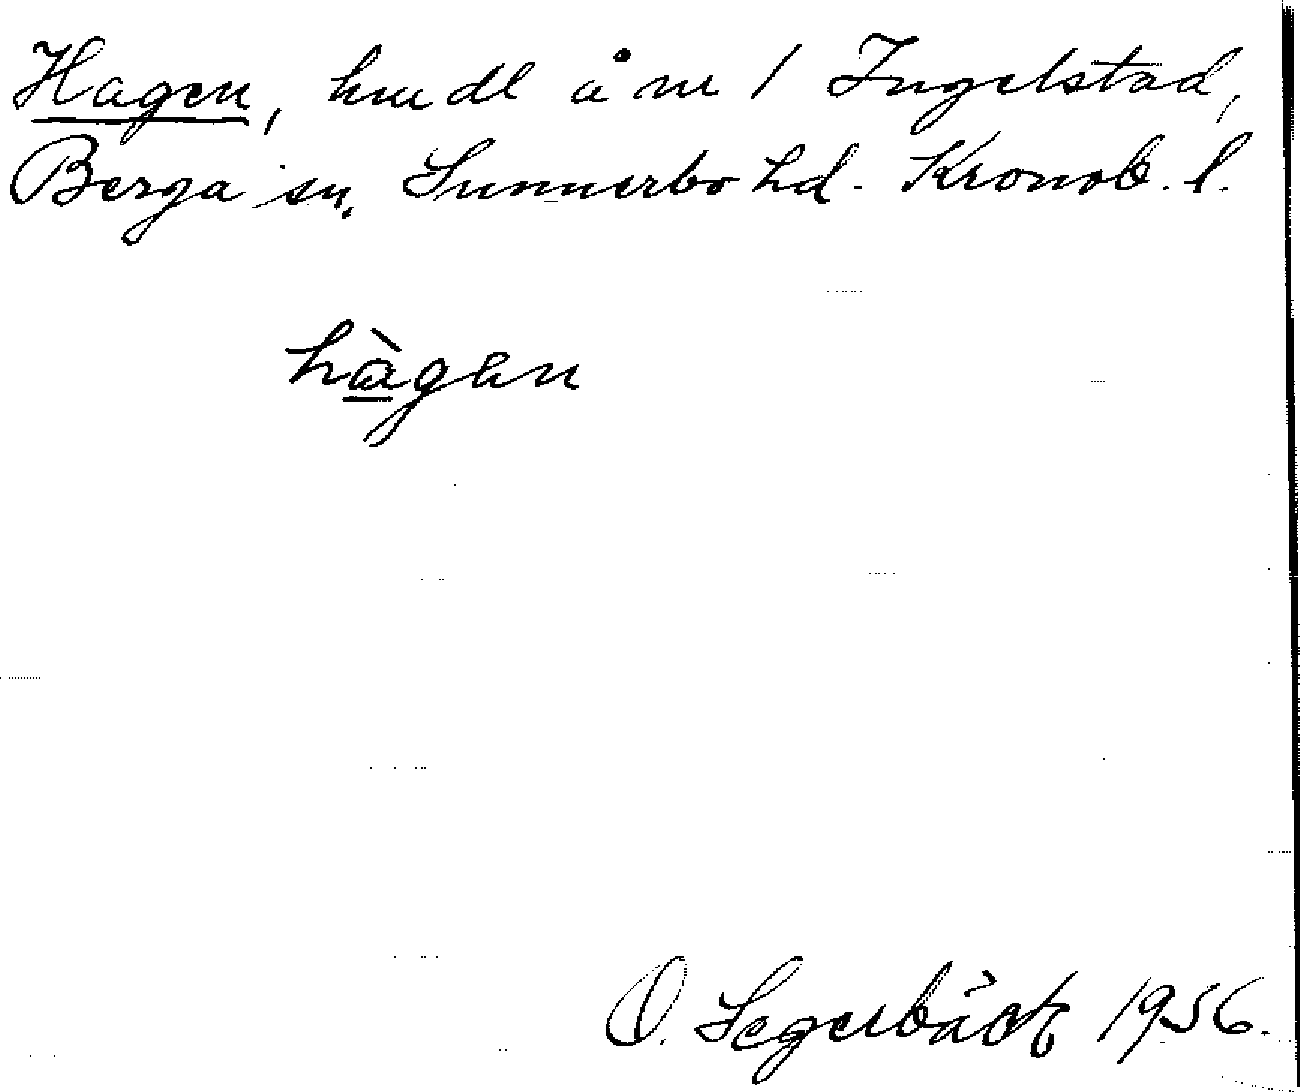 Hagen, hmdl å nr 1 Ingelstad,
Berga sn, Sunnerbo hd. Kronob. l.
hàgen
O. Segerbäck 1956.